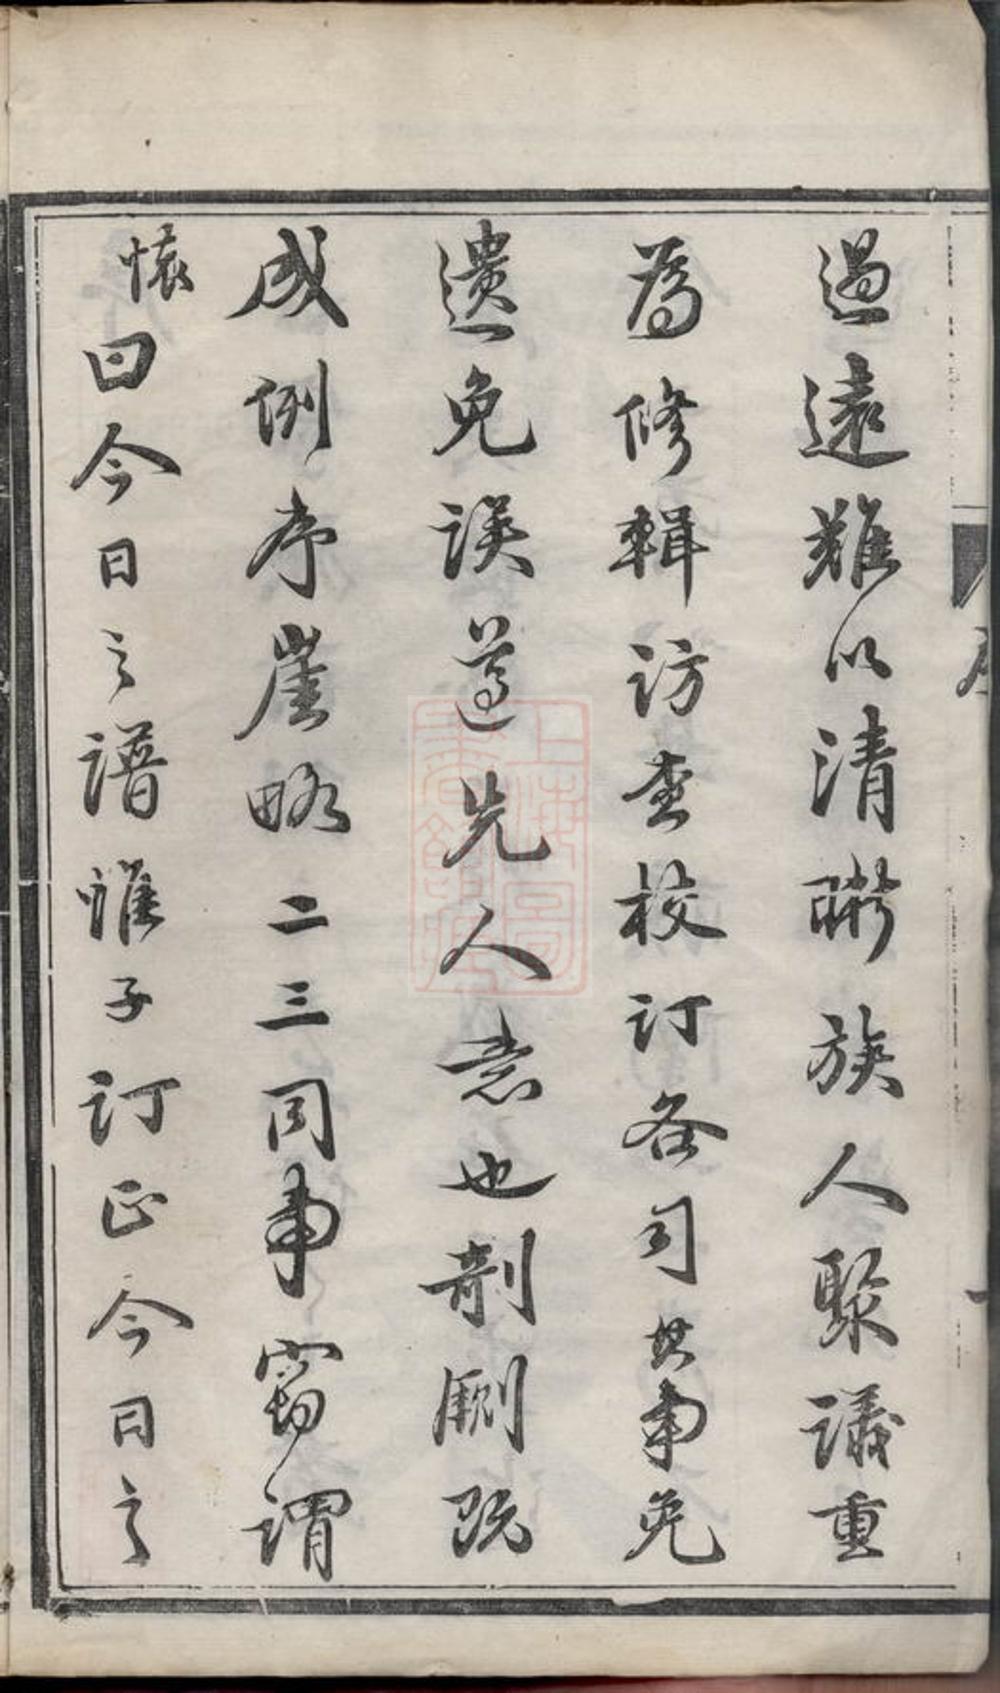 過遠難以清晰族人聚議重
為修輯訪查校訂各司其事免
遺免誤遵先人意也剞劂既
成例序崖略二三同事竊謂
懷曰今日之譜惟子訂正今日之
序
上海圖書館藏